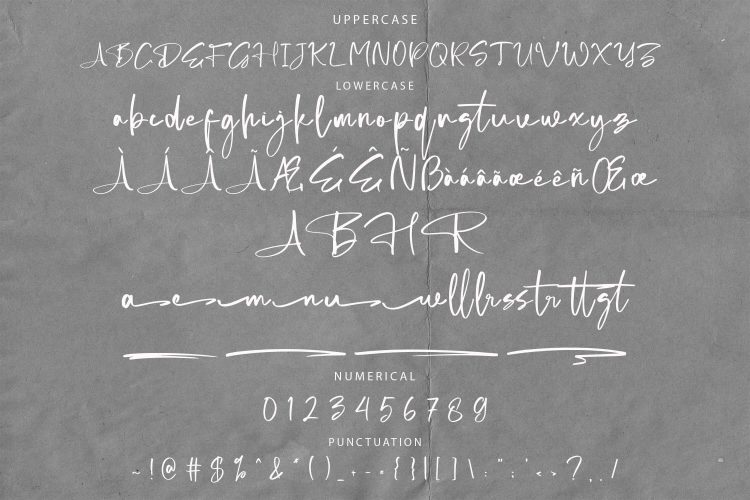 UPPERCASE
ABCDEFGHIJKLMNOPQRSTUVWXYZ
LOWERCASE
abcdefghijklmnopqrstuvwxyz
ÀÁÂÃÆÉÊÑßàáâãæéêñŒœ
ABHR
aemnuwlllrsstrttgt
NUMERICAL
0123456789
PUNCTUATION
~!@#$%^&*()_+-={}|[]\:";'<>?,./